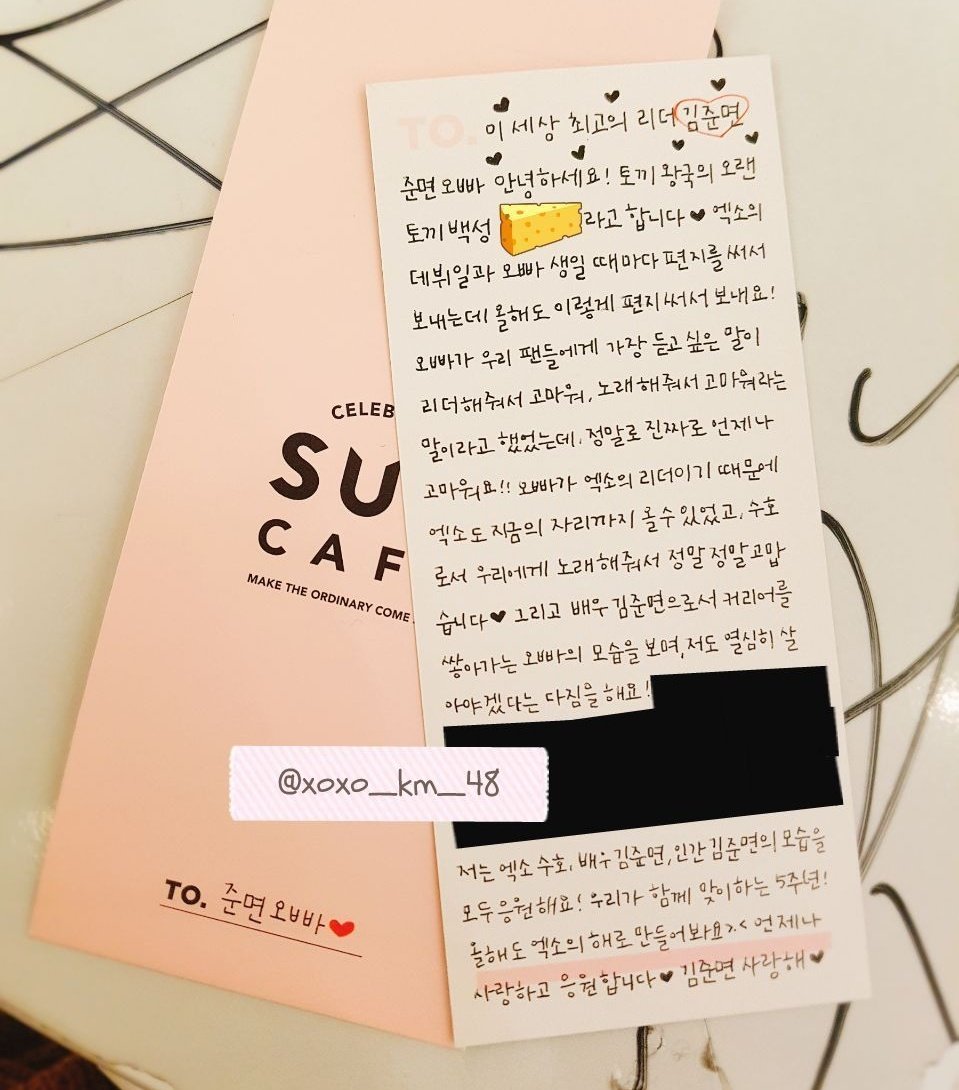 TO. 이 세상 최고의 리더 김준면
준면오빠 안녕하세요! 토끼 왕국의 오랜
토끼백성 라고 합니다♥ 엑소의
데뷔일과 오빠 생일 때마다 편지를 써서
보내는데! 올해도 이렇게 편지 써서 보내요!
오빠가 우리 팬들에게 가장 듣고 싶은 말이
리더해줘서 고마워, 노래해줘서 고마워라는
말이라고 했었는데, 정말로 진짜로 언제나
고마워요!! 오빠가 엑소의 리더이기 때문에
엑소도 지금의 자리까지 올 수 있었고, 수호
로서 우리에게 노래해줘서 정말 정말 고맙
습니다♥ 그리고 배우 김준면으로서 커리어를
쌓아가는 오빠의 모습을 보며, 저도 열심히 살
아야겠다는 다짐을 해요!
저는 엑소 수호, 배우 김준면, 인간 김준면의 모습을
모두 응원해요! 우리가 함께 맞이하는 5주년!
올해도 엑소의 해로 만들어봐요>.< 언제나
사랑하고 응원합니다♥ 김준면 사랑해♥
CELEB
SU
CAF
MAKE THE ORDINARY COME
@xoxo_km_48
TO. 준면오빠♥